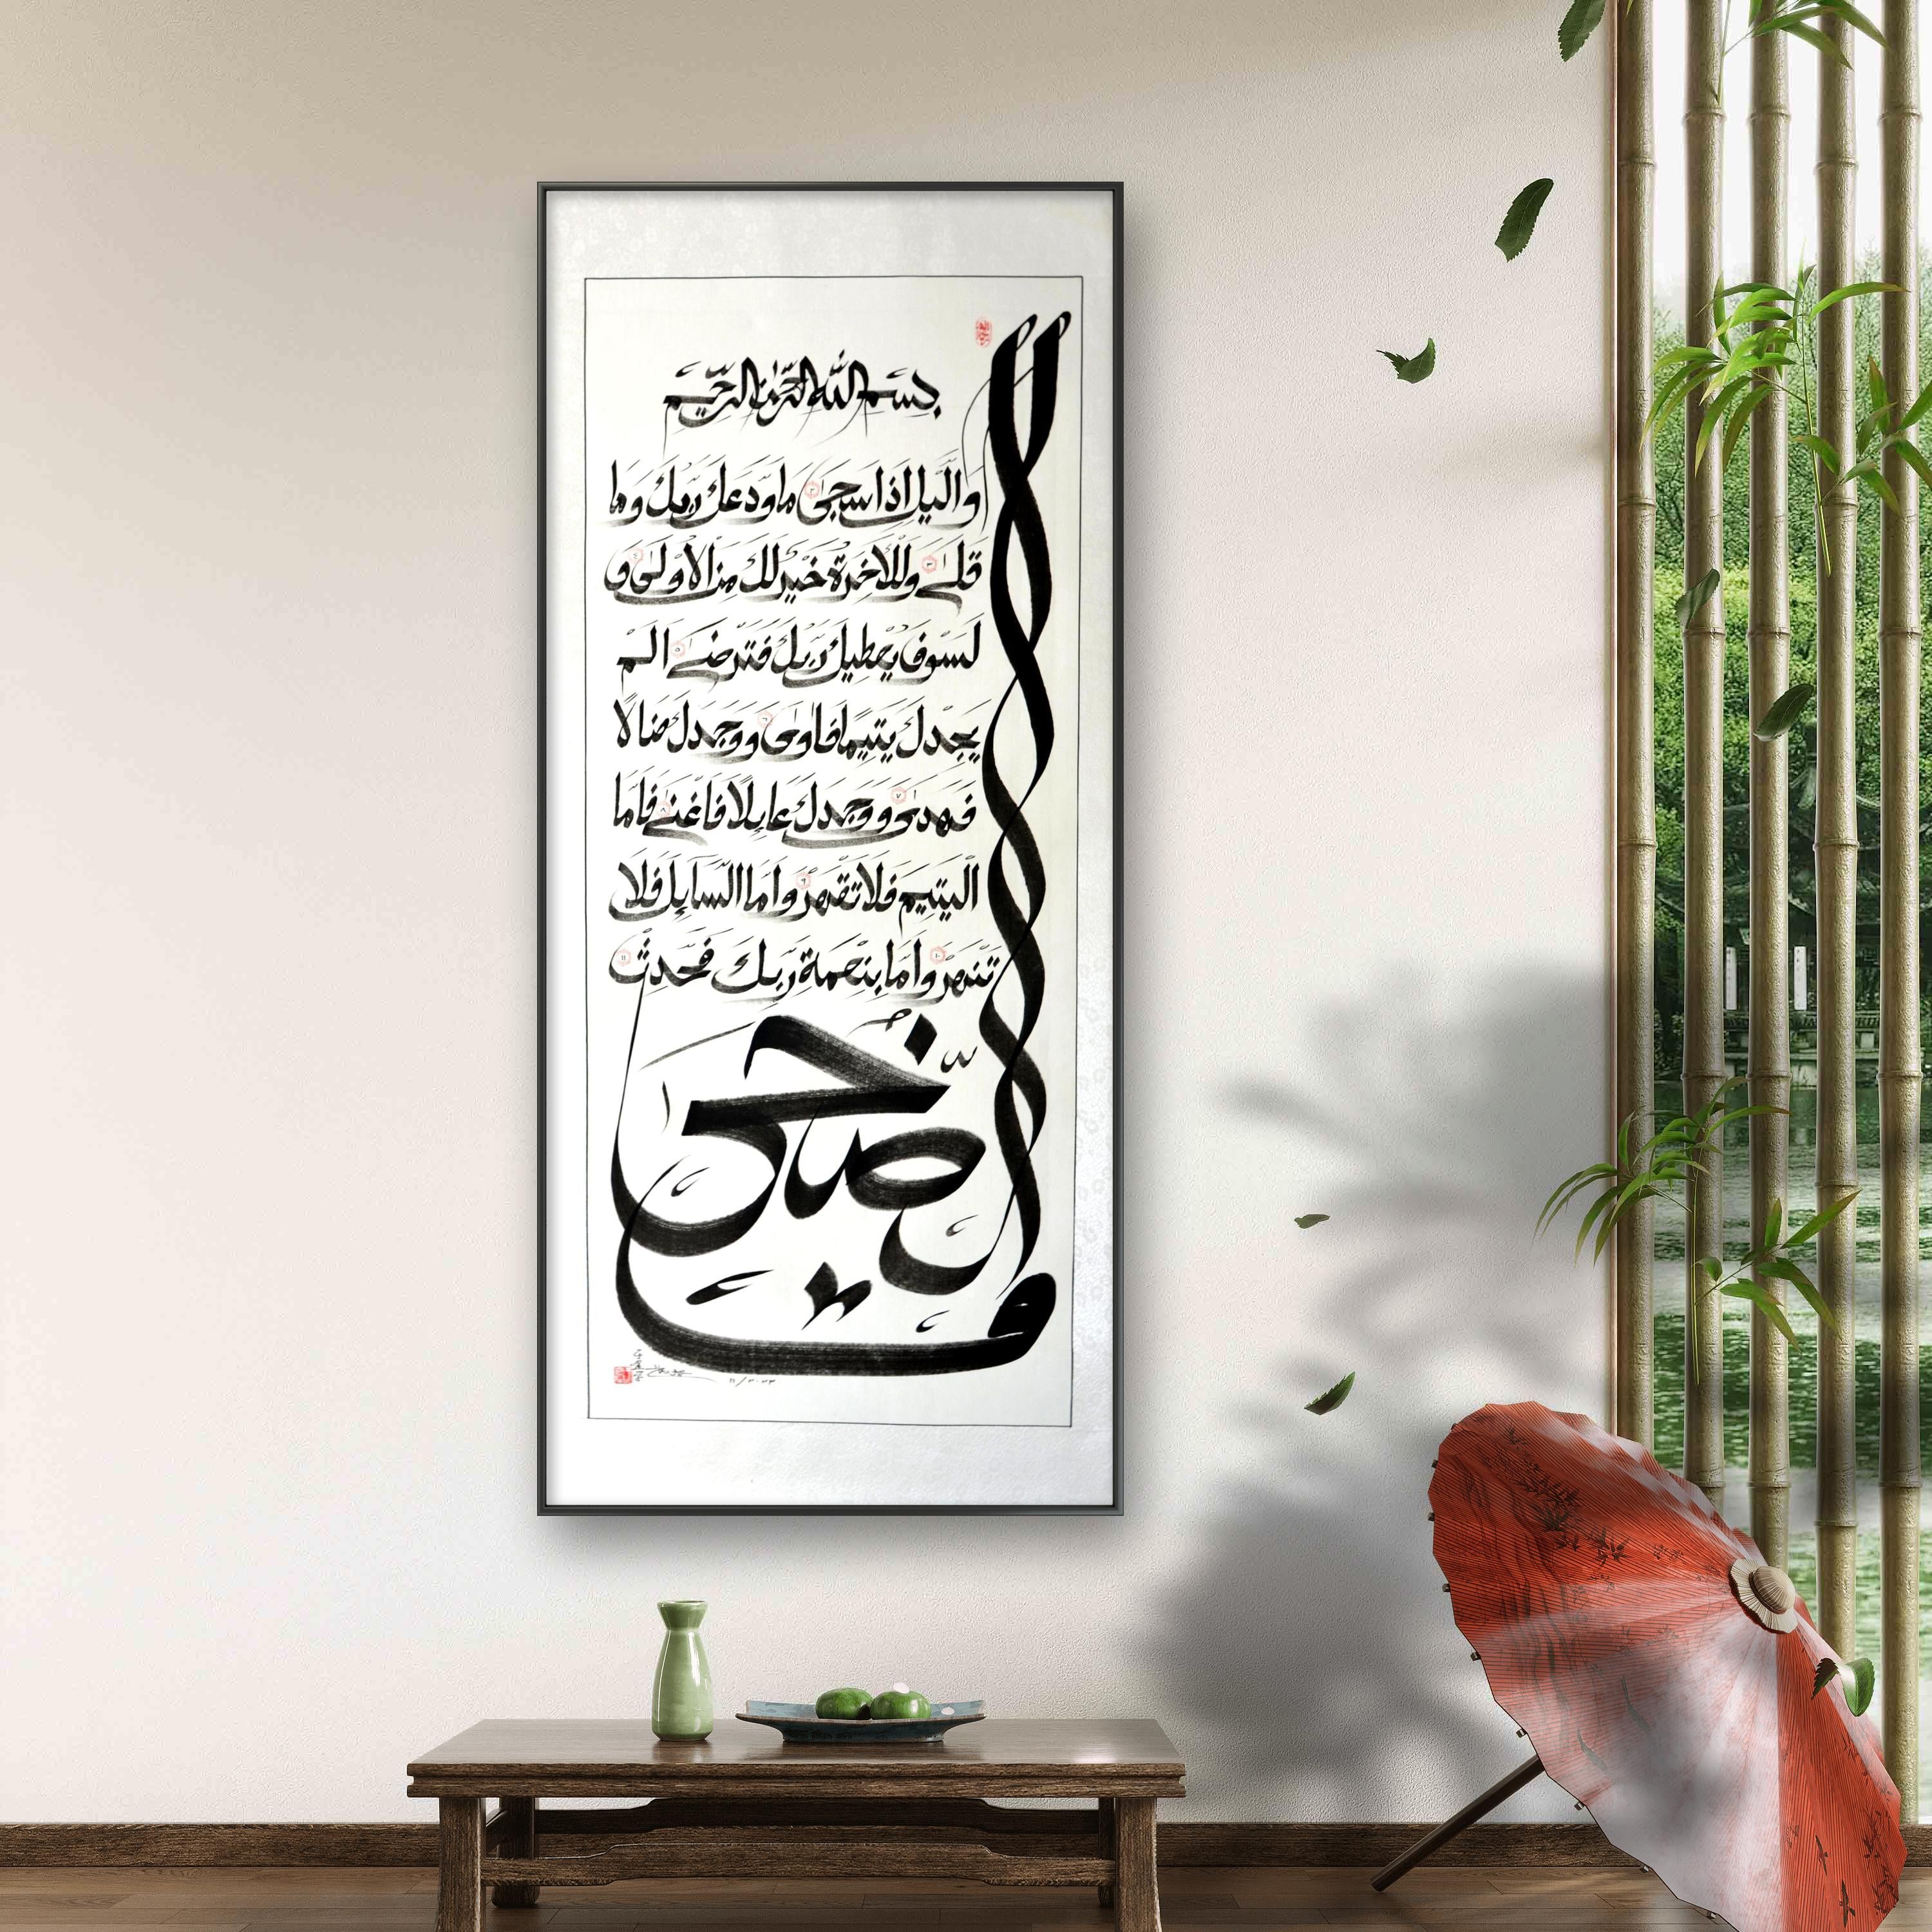 بسم الله الرحمن الرحيم
والضحى
واليل اذا سجى ٢ ما ودعك ربك وما
قلى ٣ وللآخرة خير لك من الأولى ٤ و
لسوف يعطيك ربك فترضى ٥ الم
يجدك يتيما فاوى ٦ ووجدك ضالا
فهدى ٧ ووجدك عايلا فاغنى ٨ فاما
اليتيم فلا تقهر ٩ واما السايل فلا
تنهر ١٠ واما بنعمة ربك فحدث ١١